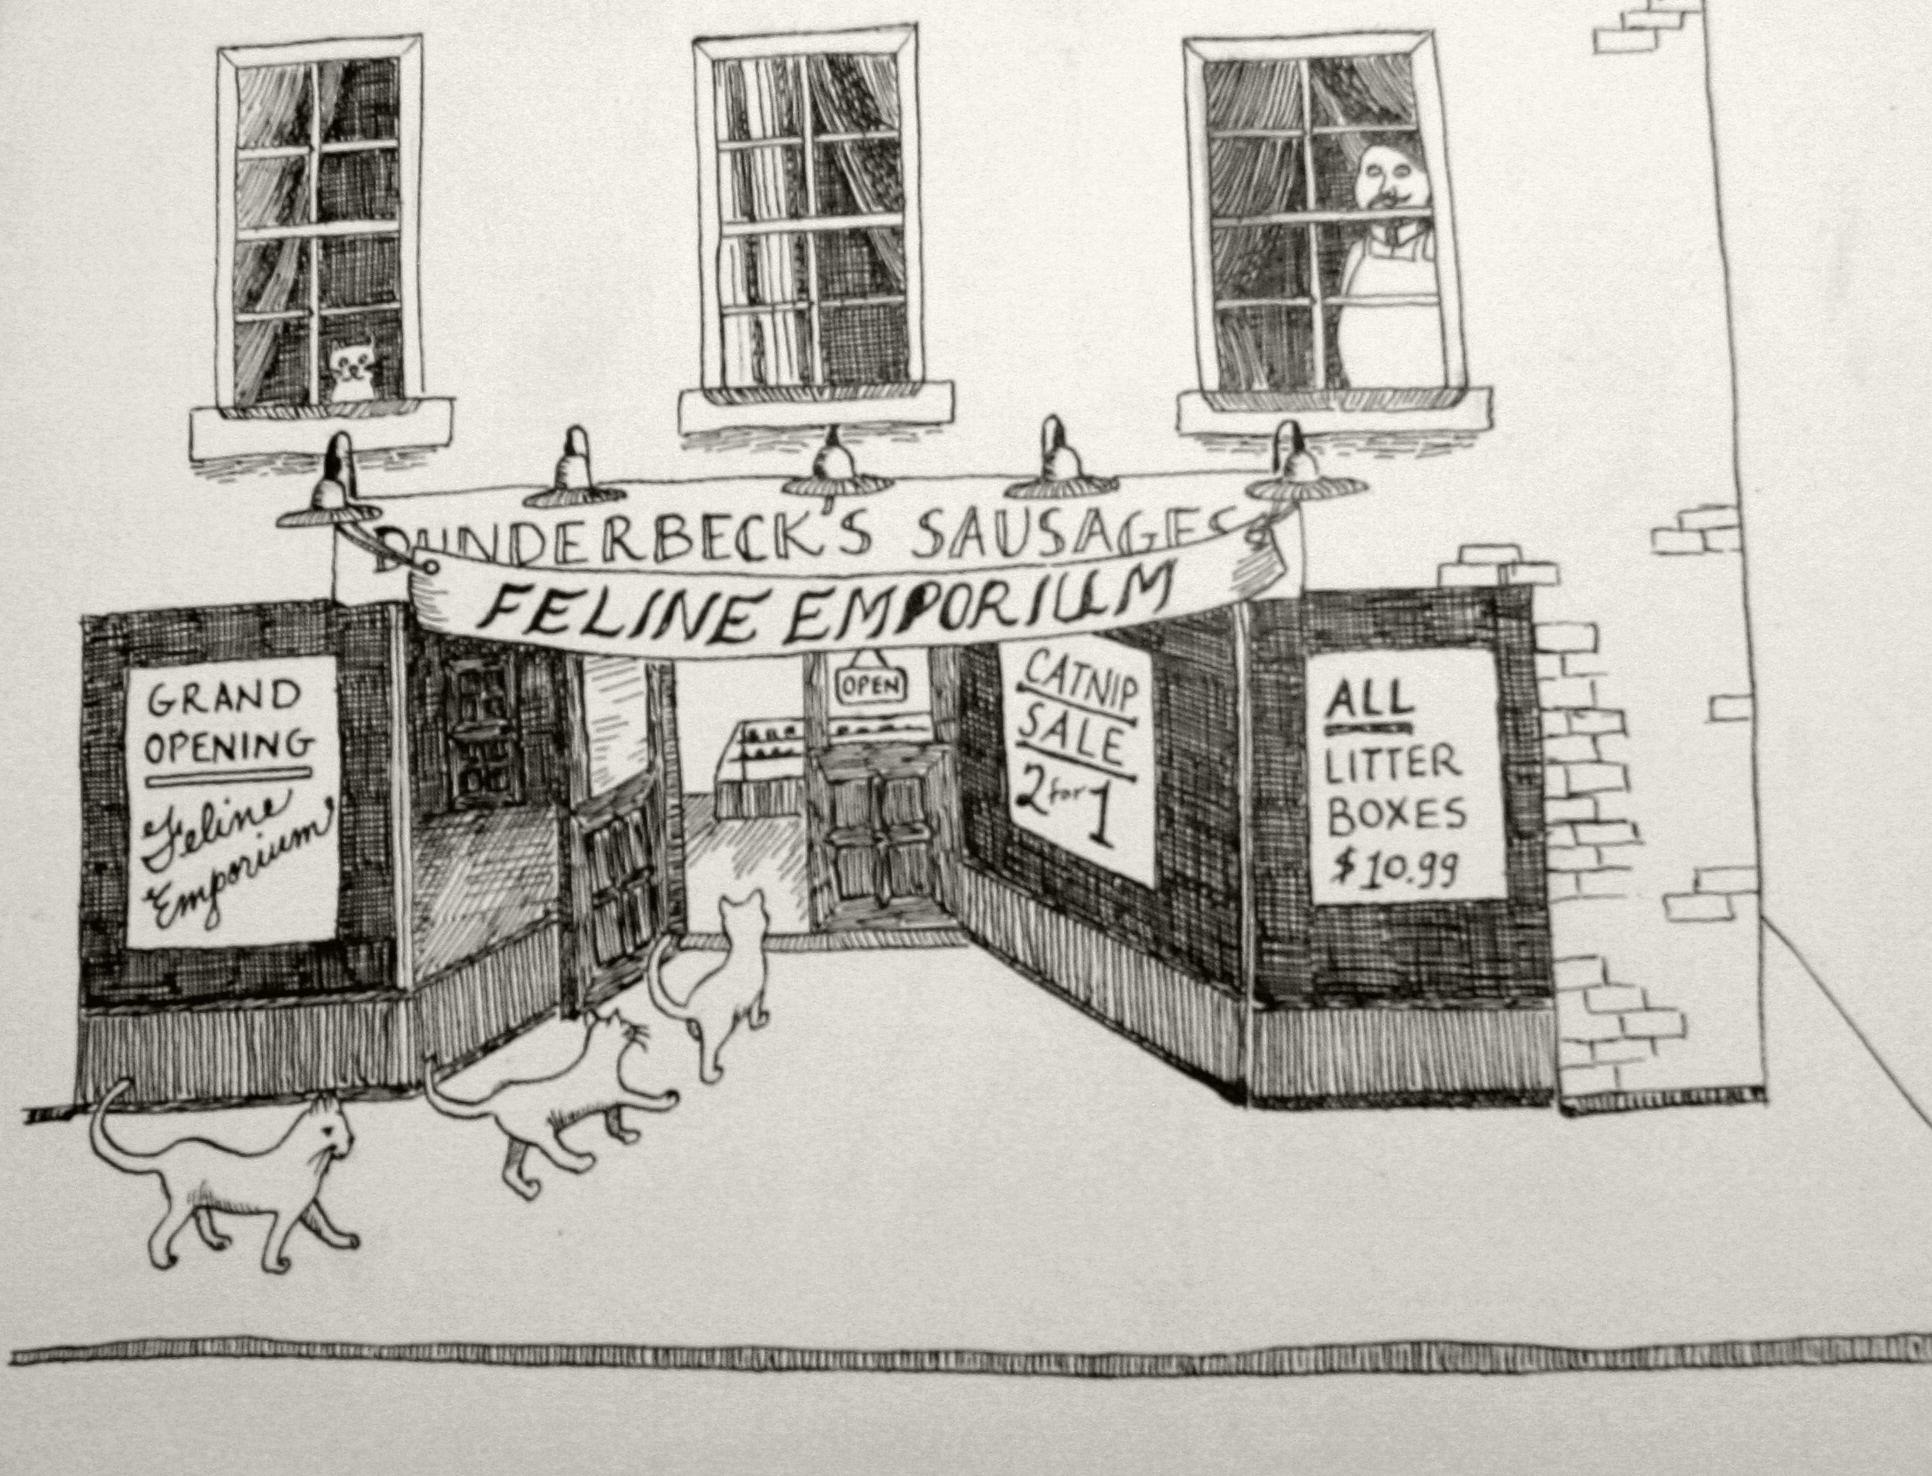 DUNDERBECK'S SAUSAGES
FELINE EMPORIUM
GRAND
OPENING
Feline
Emporium
OPEN
CATNIP
SALE
2 for 1
ALL
LITTER
BOXES
$10.99